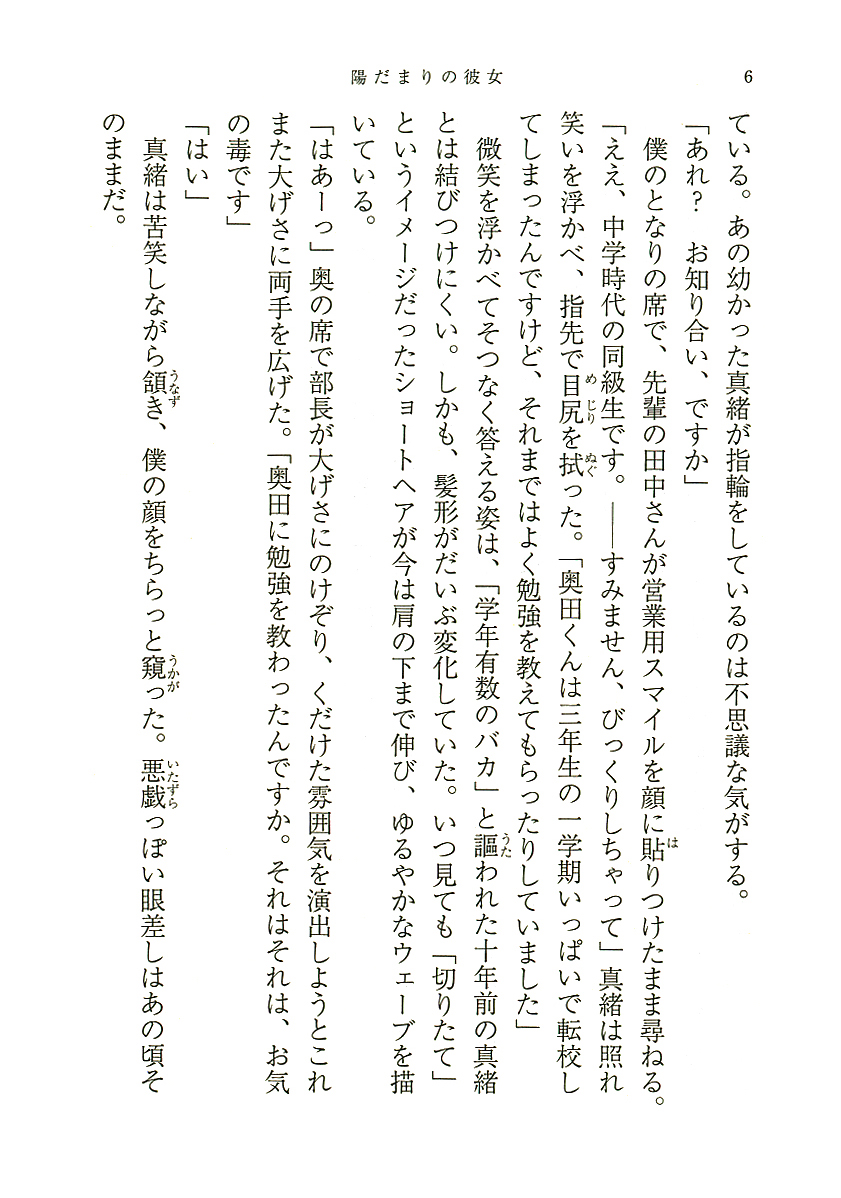 陽だまりの彼女
6
ている。あの幼かった真緒が指輪をしているのは不思議な気がする。
「あれ？　お知り合い、ですか」
　僕のとなりの席で、先輩の田中さんが営業用スマイルを顔に貼りつけたまま尋ねる。
は
「ええ、中学時代の同級生です。――すみません、びっくりしちゃって」真緒は照れ
笑いを浮かべ、指先で目尻を拭った。「奥田くんは三年生の一学期いっぱいで転校し
め じり ぬぐ
てしまったんですけど、それまではよく勉強を教えてもらったりしていました」
　微笑を浮かべてそつなく答える姿は、「学年有数のバカ」と謳われた十年前の真緒
うた
とは結びつけにくい。しかも、髪形がだいぶ変化していた。いつ見ても「切りたて」
というイメージだったショートヘアが今は肩の下まで伸び、ゆるやかなウェーブを描
いている。
「はあーっ」奥の席で部長が大げさにのけぞり、くだけた雰囲気を演出しようとこれ
また大げさに両手を広げた。「奥田に勉強を教わったんですか。それはそれは、お気
の毒です」
「はい」
　真緒は苦笑しながら頷き、僕の顔をちらっと窺った。悪戯っぽい眼差しはあの頃そ
うなず うかが いたずら
のままだ。